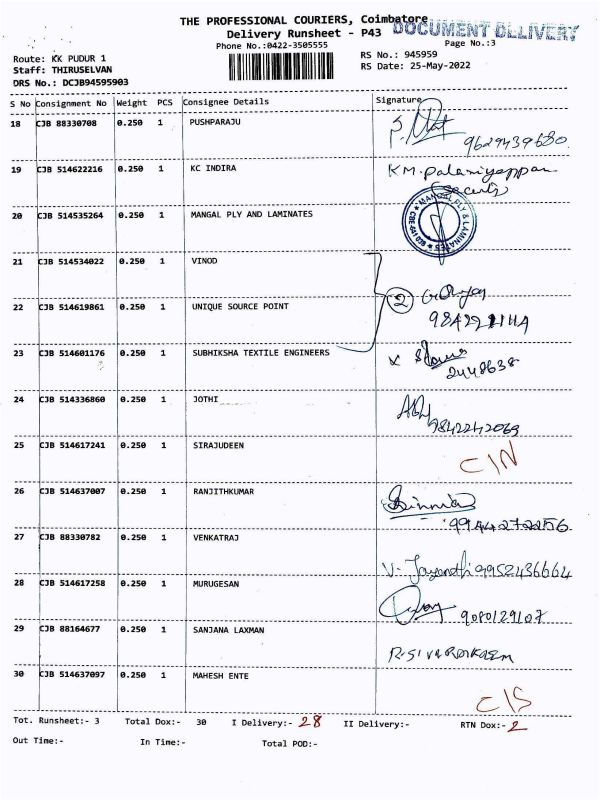 THE PROFESSIONAL COURIERS, Coimbatore
Delivery Runsheet - P43 DOCUMENT DELIVERY
Phone No.:0422-3505555 Page No.:3
Route: KK PUDUR 1 RS No.: 945959
Staff: THIRUSELVAN RS Date: 25-May-2022
DRS No.: DCJB94595903
S No Consignment No Weight PCS Consignee Details Signature
18 CJB 88330708 0.250 1 PUSHPARAJU
9629439680
19 CJB 514622216 0.250 1 KC INDIRA KM.Palaniyappan
(Security)
20 CJB 514535264 0.250 1 MANGAL PLY AND LAMINATES MANGAL PLY & LAMINATES
21 CJB 514534022 0.250 1 VINOD
22 CJB 514619861 0.250 1 UNIQUE SOURCE POINT 2
23 CJB 514601176 0.250 1 SUBHIKSHA TEXTILE ENGINEERS x
2448638
24 CJB 514336860 0.250 1 JOTHI
9842242069
25 CJB 514617241 0.250 1 SIRAJUDEEN C/N
26 CJB 514637007 0.250 1 RANJITHKUMAR
9944272256
27 CJB 88330782 0.250 1 VENKATRAJ
V. Jayandhi 9952436664
28 CJB 514617258 0.250 1 MURUGESAN
9080129107
29 CJB 88164677 0.250 1 SANJANA LAXMAN
30 CJB 514637097 0.250 1 MAHESH ENTE
C/S
Tot. Runsheet:- 3 Total Dox:- 30 I Delivery:- 28 II Delivery:- RTN Dox:- 2
Out Time:- In Time:- Total POD:-